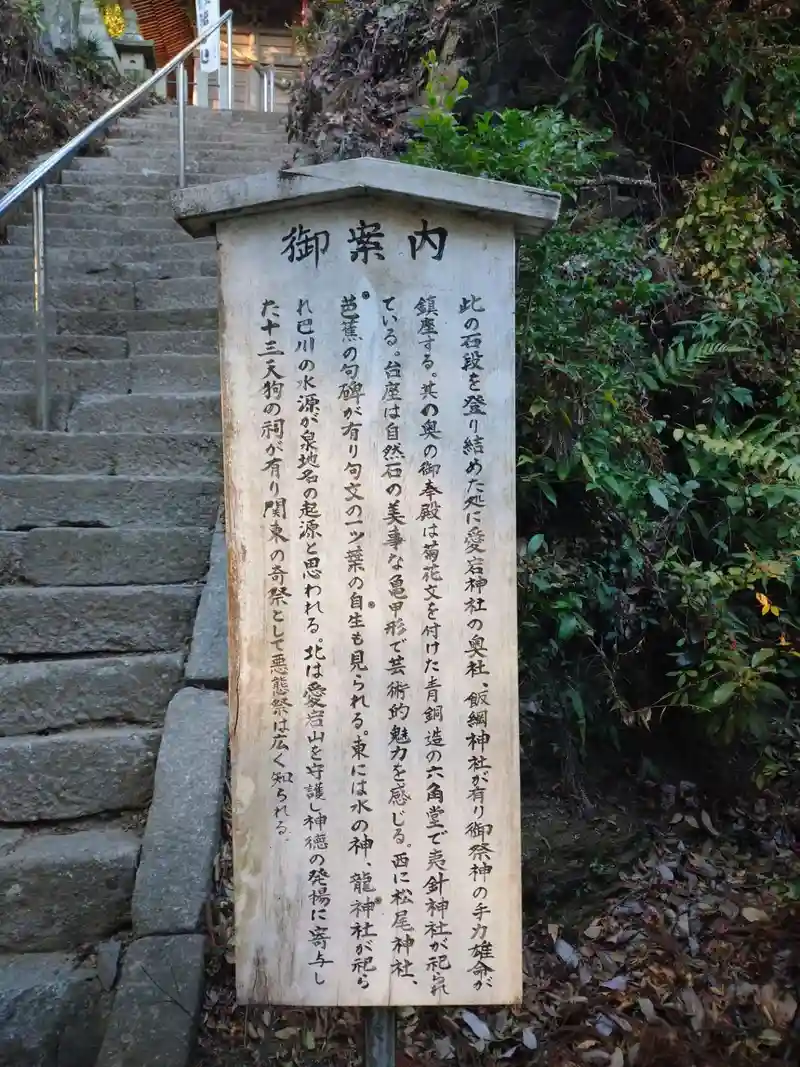 御案内
此の石段を登り結めた処に愛宕神社の奥社、飯綱神社が有り御祭神の手力雄命が
鎮座する。其の奥の御奉殿は菊花文を付けた青銅造の六角堂で夷針神社が祀られ
ている。台座は自然石の美事な亀甲形で芸術的魅力を感じる。西に松尾神社、
芭蕉の句碑が有り句文の一ツ葉の自生も見られる。東には水の神、龍神社が祀ら
れ巴川の水源が泉地名の起源と思われる。北は愛宕山を守護し神徳の発揚に寄与し
た十三天狗の祠が有り関東の奇祭として悪態祭は広く知られる。